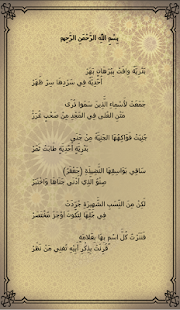 بِسْمِ اللهِ الرَّحْمَنِ الرَّحِيمِ
بَدْرِيَّةٌ وَافَتْ بِبُرْهَانٍ بَهَرْ
أُحْدِيَّةٌ فِي سَرْدِهَا سِرٌّ ظَهَرْ
جَمَعَتْ لِأَسْمَاءِ الَّذِينَ سَمَوْا ذُرَى
مَتْنِ العُلَى فِي المَجْدِ مِنْ صَحْبٍ غُرَرْ
جُنِيَتْ فَوَاكِهُهَا الجَنِيَّةُ مِنْ جَنَى
بَدْرِيَّةٍ أُحْدِيَّةٍ طَابَتْ ثَمَرْ
سَاقِي بَوَاسِقِهَا النَّضِيدَةِ (جَعْفَرٌ)
صِنْوُ الَّذِي أَدْنَى جَنَاهَا وَاخْتَصَرْ
لَكِنْ مِنَ النِّسَبِ الشَّهِيرَةِ جُرِّدَتْ
فِي جُلِّهَا لِتَكُونَ أَوْجَزَ مُخْتَصَرْ
فَنَثَرْتُ كُلَّ اسْمٍ بِهَا بِعَلَامَةٍ
قُرِنَتْ بِذِكْرِ أَبِيهِ تُغْنِي مَنْ نَظَرْ